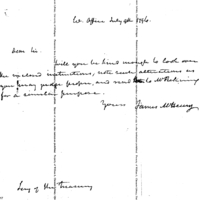 Office July 9th 1796.
Dear Sir.
Will you be kind enough to look over
the enclosed instructions, note such alterations as
you may judge proper, and send to Mr
for a similar purpose.
Yours James McHenry
Secy of the Treasury